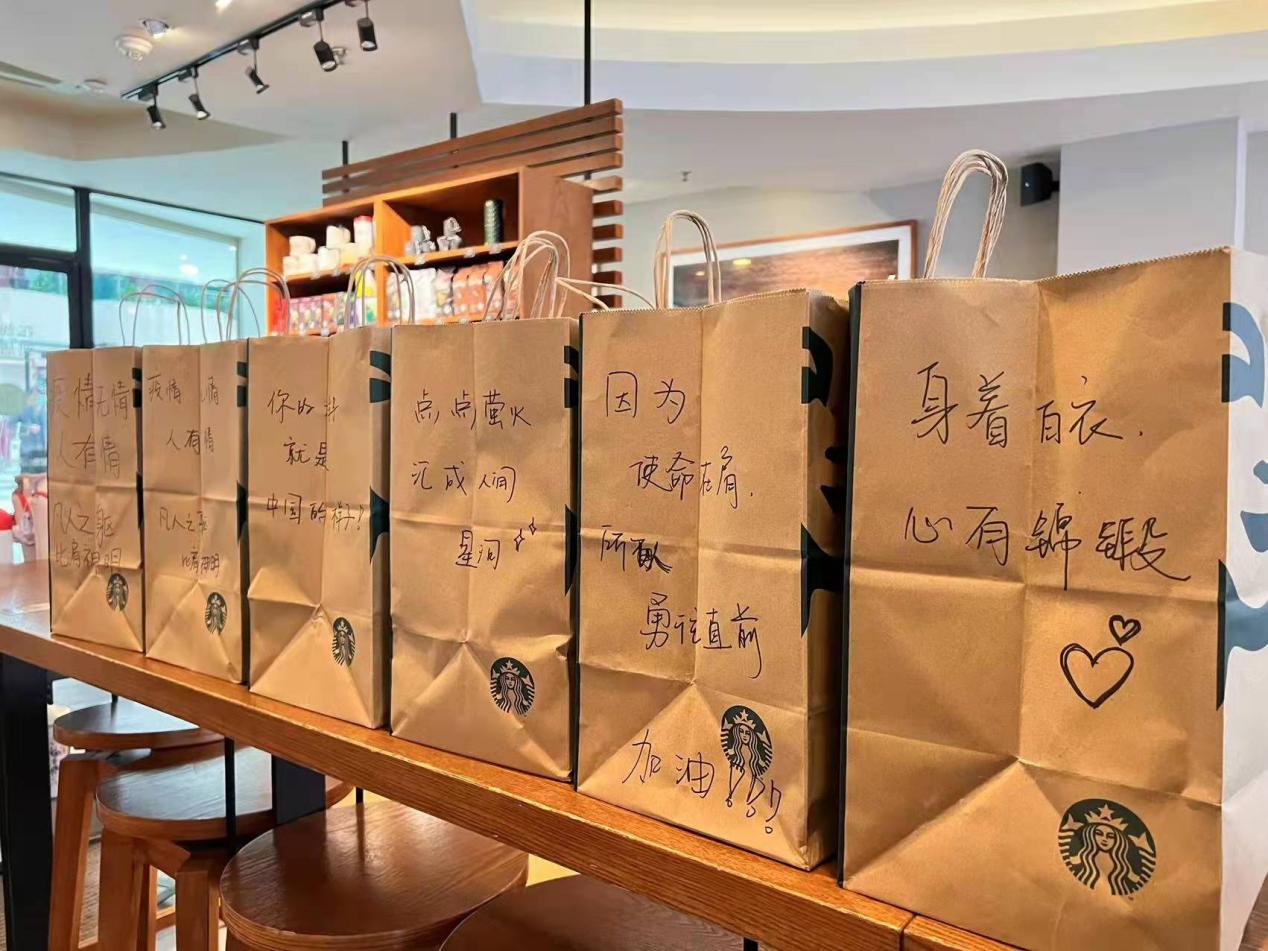 疫情无情
人有情
凡人之躯
比肩神明
疫情 情
人有情
凡人之
比肩神明
你的
就是
中国的样子!
点点萤火
汇成人间
星河
因为
使命在肩.
所以
勇往直前
加油!!!
身着白衣.
心有锦缎